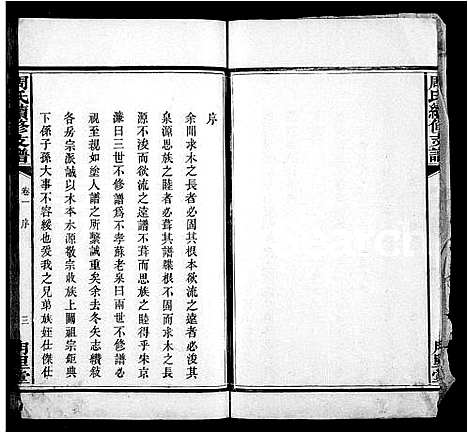 周氏續修支譜
序
余聞求木之長者必固其根本欲流之遠者必浚其
泉源思族之睦者必葺其譜牒根不固而求木之長
源不浚而欲流之遠譜不葺而思族之睦得乎朱京
濂曰三世不修譜爲不孝蘇老泉曰兩世不修譜必
視一己如塗人譜之所繫誠重矣余去冬矢志續敘
各房宗派誠以木本水源敬宗收族上關祖宗鉅典
下係子孫大事不容緩也爰我之兄弟族姪仕傑仕
周氏續修支譜
卷一
序
三